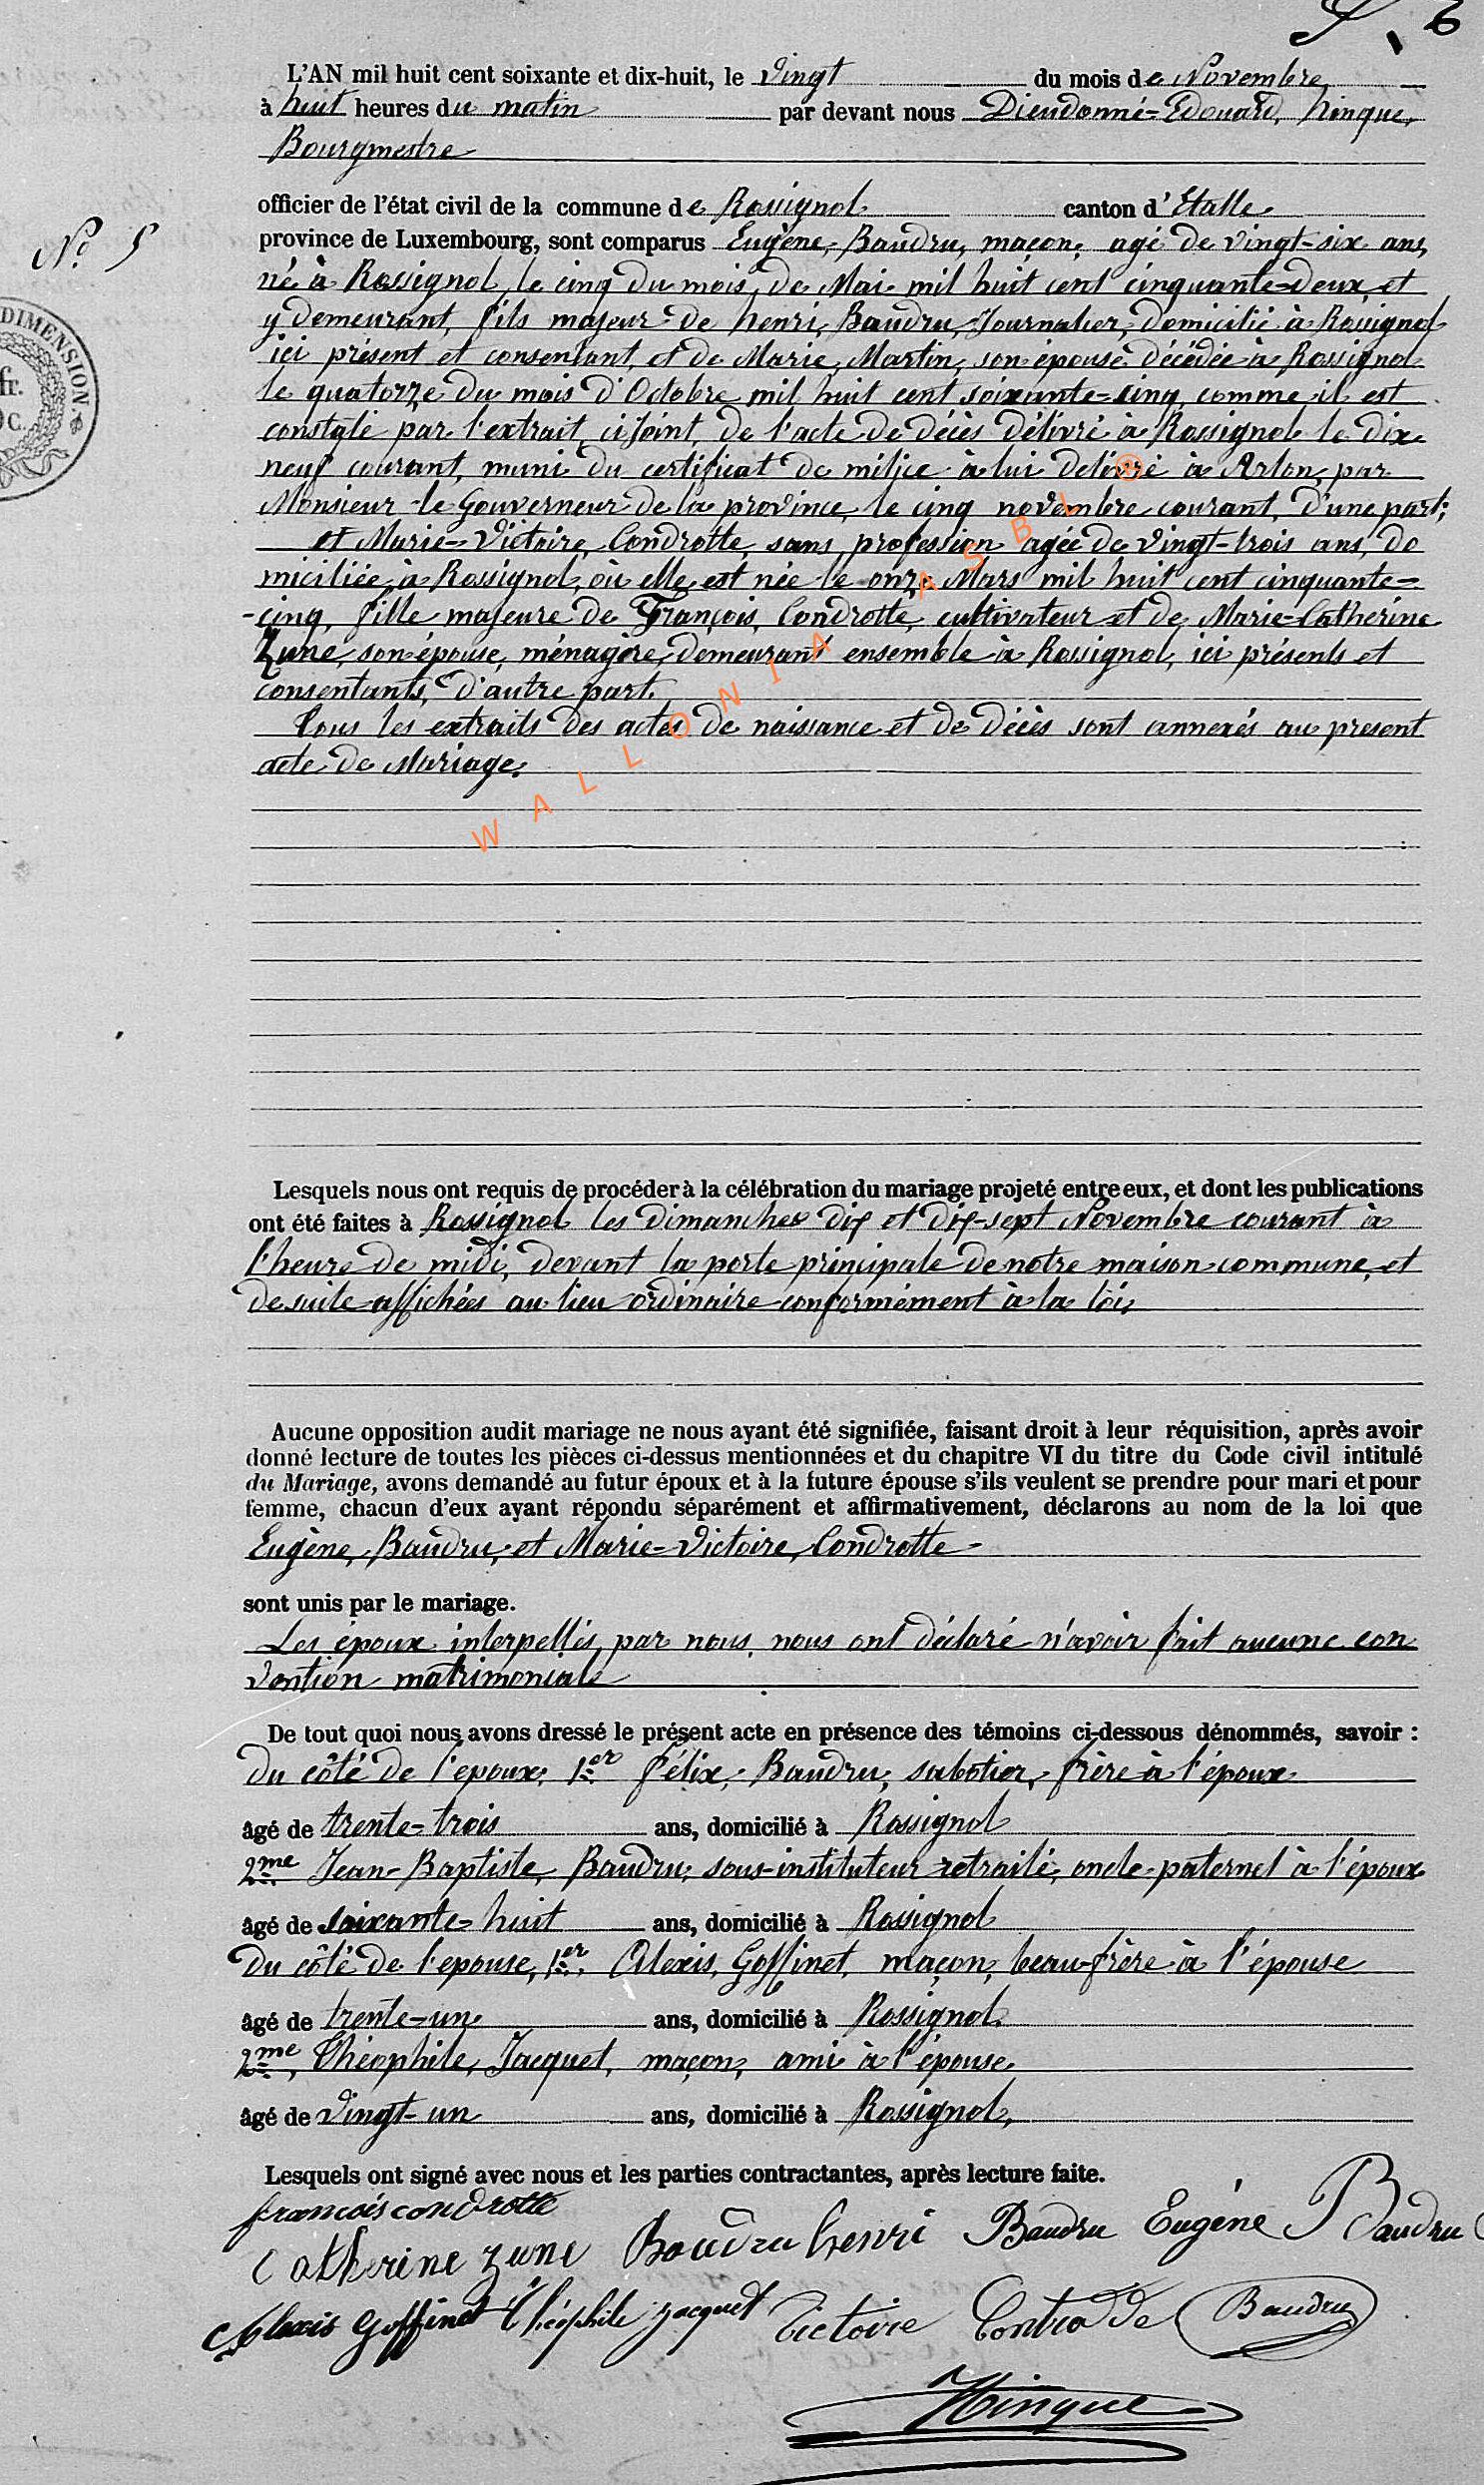 6
L'AN mil huit cent soixante et dix-huit, le vingt du mois de Novembre
à huit heures du matin par devant nous Dieudonné-Edouard, hinque,
Bourgmestre
officier de l'état civil de la commune de Rossignol canton d'Etalle
N° 5
province de Luxembourg, sont comparus Eugène, Baudru, maçon, agé de vingt-six ans,
né à Rossignol, le cinq du mois de Mai mil huit cent cinquante-deux, et
y demeurant, fils majeur de henri, Baudru, Journalier, domicilié à Rossignol
ici présent et consentant, et de Marie, Martin, son épouse décédée à Rossignol
DIMENSION.
fr.
c.
le quatorze du mois d'Octobre mil huit cent soixante-cinq, comme il est
constaté par l'extrait, ci Joint, de l'acte de décès délivré à Rossignol le dix
neuf courant, muni du certificat de milice à lui délivré à Arlon, par
Monsieur le Gouverneur de la province, le cinq novembre courant, d'une part;
et Marie-Victoire, Condrotte, sans profession agée de vingt-trois ans, do
miciliée à Rossignol, où elle est née le onze Mars mil huit cent cinquante-
-cinq, fille majeure de François, Condrotte, cultivateur et de Marie-Catherine
Zune, son épouse, ménagère, demeurant ensemble à Rossignol, ici présents et
consentants, d'autre part.
Tous les extraits des actes de naissance et de décès sont annexés au présent
acte de Mariage.
WALLONIA ASBL ®
Lesquels nous ont requis de procéder à la célébration du mariage projeté entre eux, et dont les publications
ont été faites à Rossignol les dimanches dix et dix-sept Novembre courant à
l'heure de midi, devant la porte principale de notre maison commune, et
de suite affichées au lieu ordinaire conformément à la loi,
Aucune opposition audit mariage ne nous ayant été signifiée, faisant droit à leur réquisition, après avoir
donné lecture de toutes les pièces ci-dessus mentionnées et du chapitre VI du titre du Code civil intitulé
du Mariage, avons demandé au futur époux et à la future épouse s'ils veulent se prendre pour mari et pour
femme, chacun d'eux ayant répondu séparément et affirmativement, déclarons au nom de la loi que
Eugène, Baudru, et Marie-Victoire, Condrotte-
sont unis par le mariage.
Les époux interpellés par nous, nous ont déclaré n'avoir fait aucune con
vention matrimoniale
De tout quoi nous avons dressé le présent acte en présence des témoins ci-dessous dénommés, savoir :
Du côté de l'époux, 1er félix, Baudru, sabotier, frère à l'époux
âgé de trente-trois ans, domicilié à Rossignol
2me Jean-Baptiste, Baudru, sous-instituteur retraité, oncle paternel à l'époux
âgé de soixante-huit ans, domicilié à Rossignol
Du côté de l'épouse, 1er, Alexis, Goffinet, maçon, beau-frère à l'épouse
âgé de trente-un ans, domicilié à Rossignol.
2me, Théophile, Jacquet, maçon, ami à l'épouse,
âgé de vingt-un ans, domicilié à Rossignol,
Lesquels ont signé avec nous et les parties contractantes, après lecture faite.
françois condrotte
Catherine zune Baudru henri Baudru Eugène J Baudru
Alexis Goffinet Théophile jacquet Victoire Contrade Baudru
Hinque